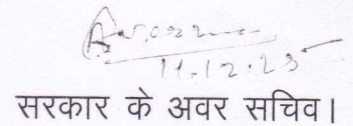 11.12.23
सरकार के अवर सचिव।